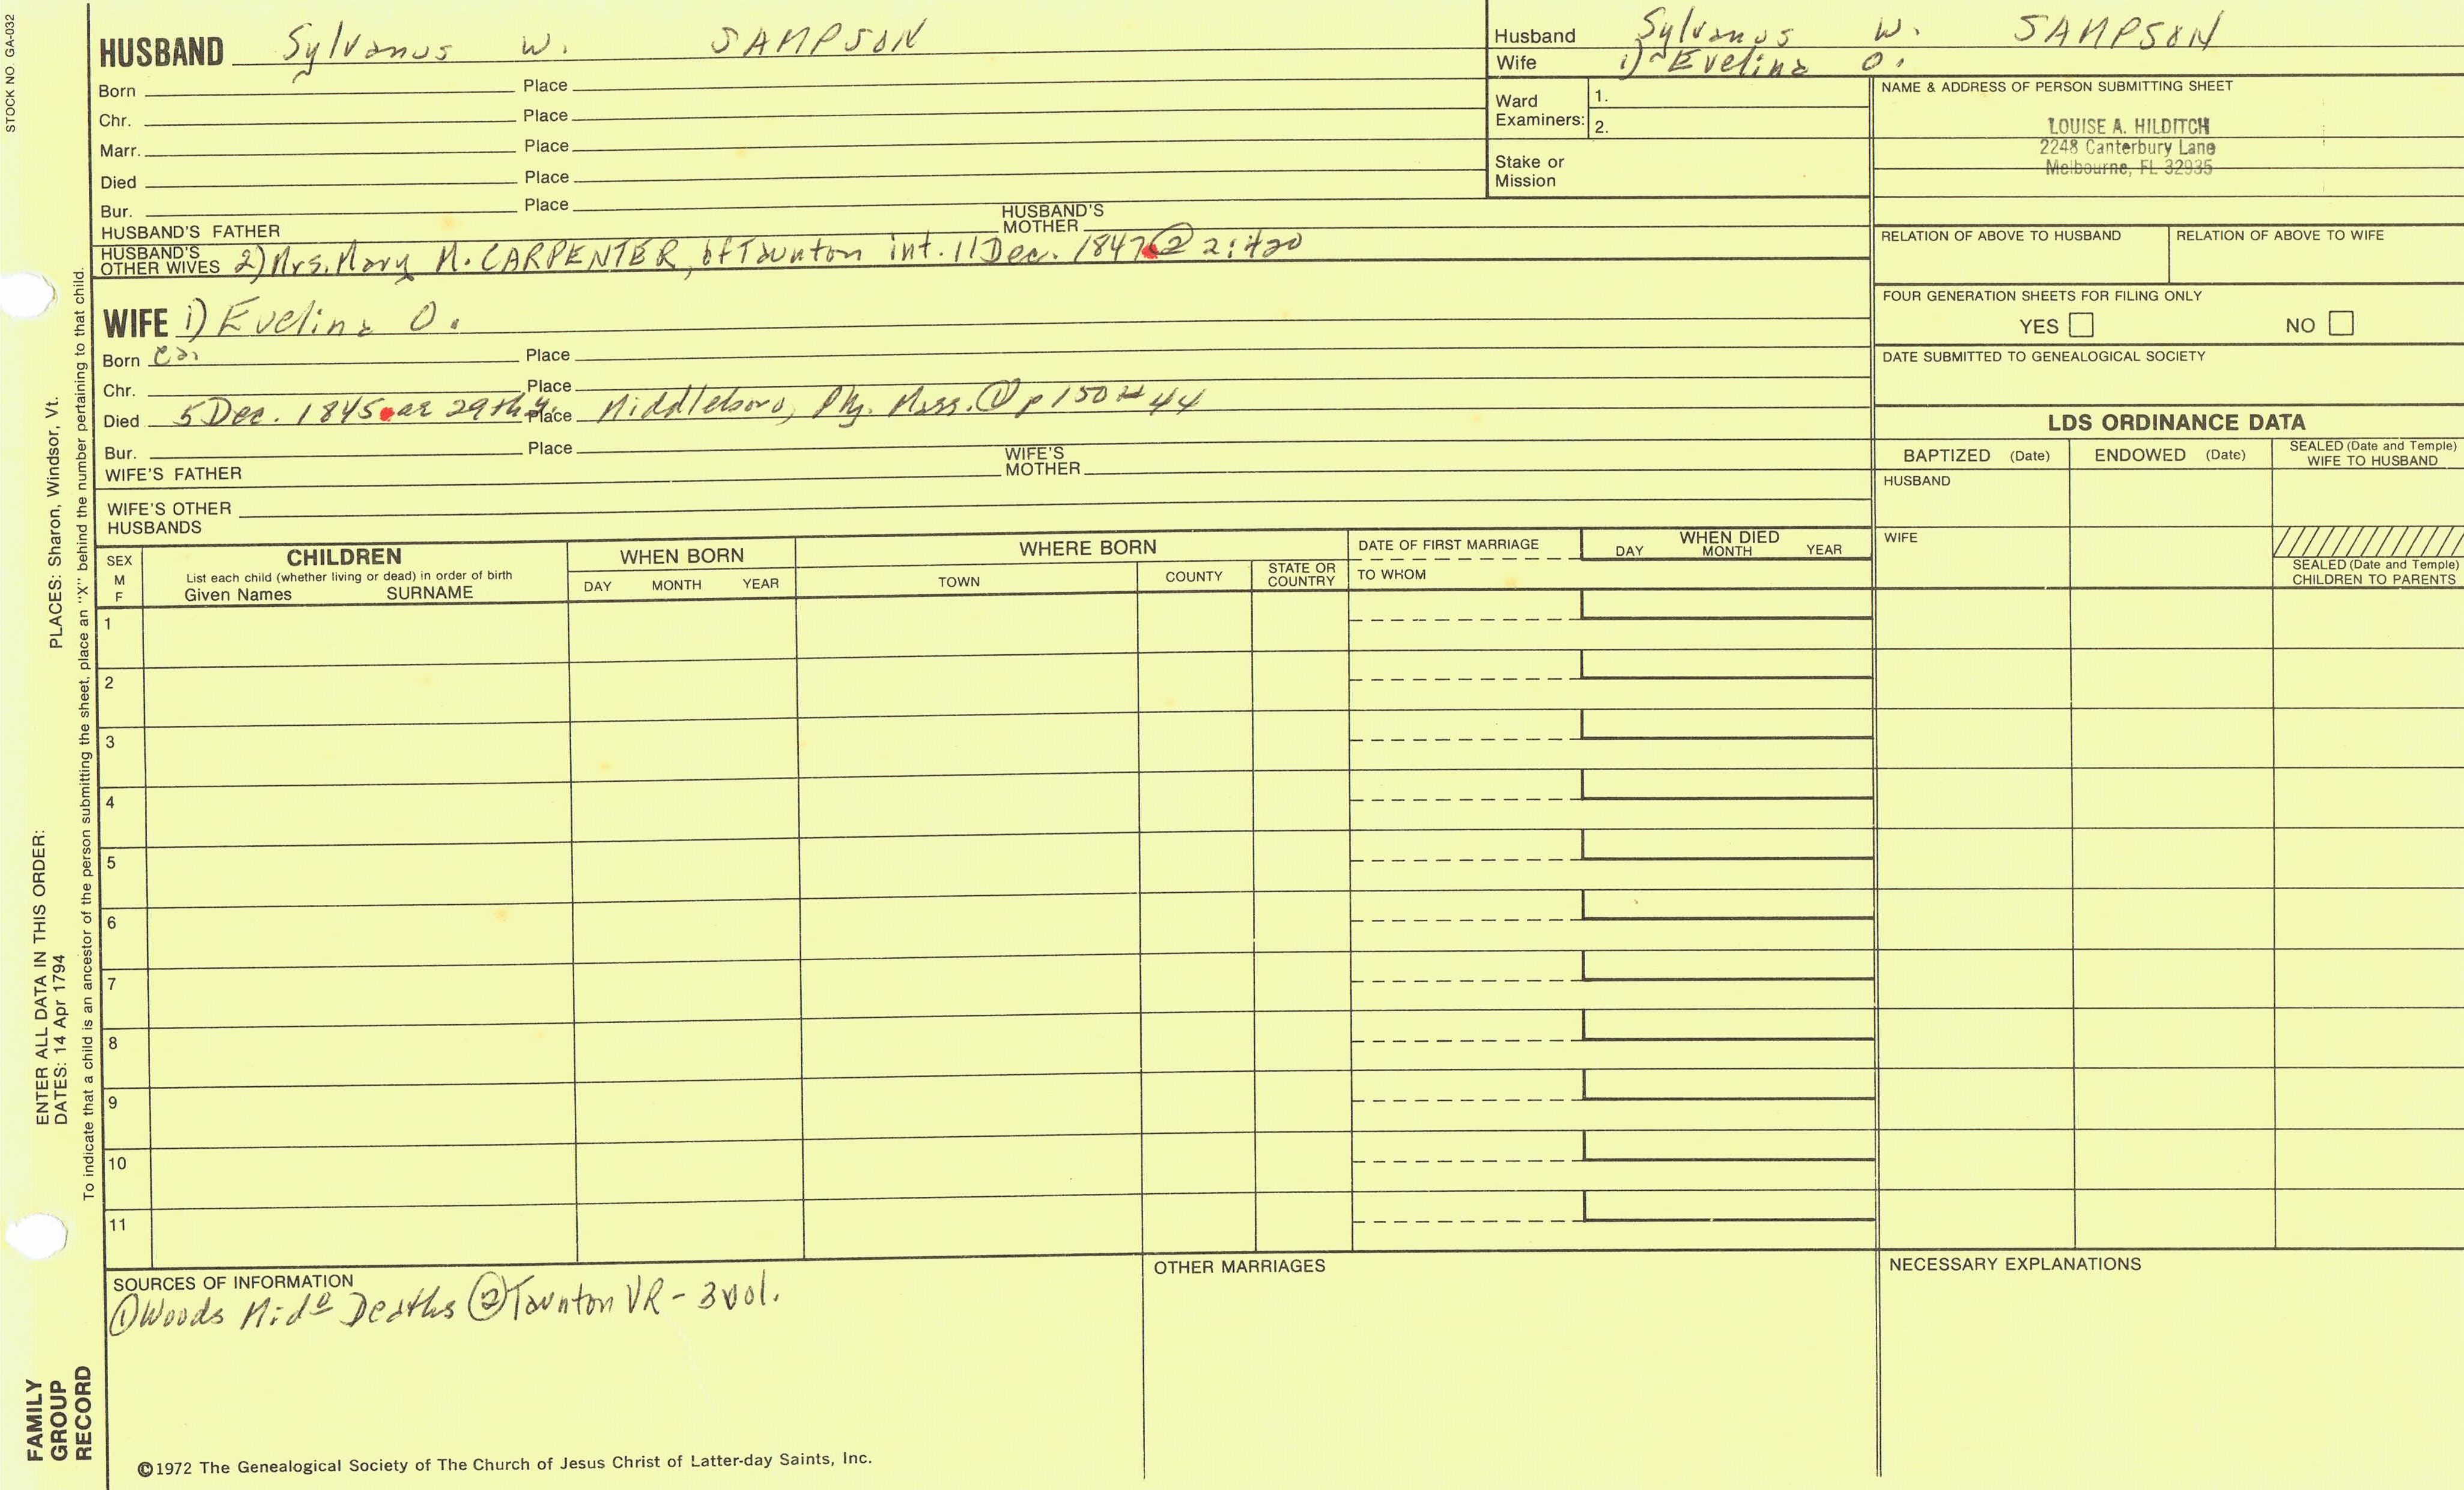 STOCK NO. GA-032
HUSBAND Sylvanus W. SAMPSON
Born Place
Chr. Place
Marr. Place
Died Place
Bur. Place
HUSBAND'S FATHER HUSBAND'S MOTHER
HUSBAND'S OTHER WIVES 2) Mrs. Mary M. CARPENTER, of Taunton int. 11 Dec. 1847 ② 2:420
WIFE 1) Evelina O.
Born ca.
Place
Chr. Place
Died 5 Dec. 1845 ae 29th y. Place Middleboro, Ply. Mass. ① p 150 # 44
Bur. Place
WIFE'S FATHER WIFE'S MOTHER
WIFE'S OTHER HUSBANDS
Husband Sylvanus W. SAMPSON
Wife 1) Evelina O.
Ward Examiners: 1.
2.
Stake or Mission
NAME & ADDRESS OF PERSON SUBMITTING SHEET
LOUISE A. HILDITCH
2248 Canterbury Lane
Melbourne, FL 32935
RELATION OF ABOVE TO HUSBAND RELATION OF ABOVE TO WIFE
FOUR GENERATION SHEETS FOR FILING ONLY
YES NO
DATE SUBMITTED TO GENEALOGICAL SOCIETY
LDS ORDINANCE DATA
BAPTIZED (Date) ENDOWED (Date) SEALED (Date and Temple) WIFE TO HUSBAND
HUSBAND
WIFE
SEALED (Date and Temple) CHILDREN TO PARENTS
SEX M F
CHILDREN
List each child (whether living or dead) in order of birth
Given Names SURNAME
WHEN BORN
DAY MONTH YEAR
WHERE BORN
TOWN COUNTY STATE OR COUNTRY
DATE OF FIRST MARRIAGE
TO WHOM
WHEN DIED
DAY MONTH YEAR
1
2
3
4
5
6
7
8
9
10
11
SOURCES OF INFORMATION
① Woods Mid° Deaths ② Taunton VR - 3 vol.
OTHER MARRIAGES
NECESSARY EXPLANATIONS
©1972 The Genealogical Society of The Church of Jesus Christ of Latter-day Saints, Inc.
FAMILY GROUP RECORD
ENTER ALL DATA IN THIS ORDER:
DATES: 14 Apr 1794
PLACES: Sharon, Windsor, Vt.
To indicate that a child is an ancestor of the person submitting the sheet, place an "X" behind the number pertaining to that child.